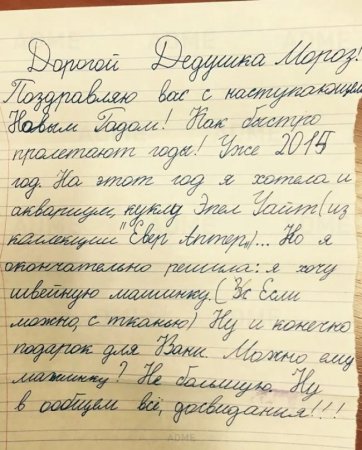 Дорогой Дедушка Мороз!
Поздравляю вас с наступающем
Новым Годом! Как быстро
пролетают годы! Уже 2015
год. На этот год я хотела и
аквариум, куклу Эпел Уайт (из
коллекции "Евер Аптер„)... Но я
окончательно решила: я хочу
швейную машинку. (Если
можно, с тканью) Ну и конечно
подарок для Вани. Можно ему
машинку? Не большую. Ну
в общем всё, досвидания!!!
ADME